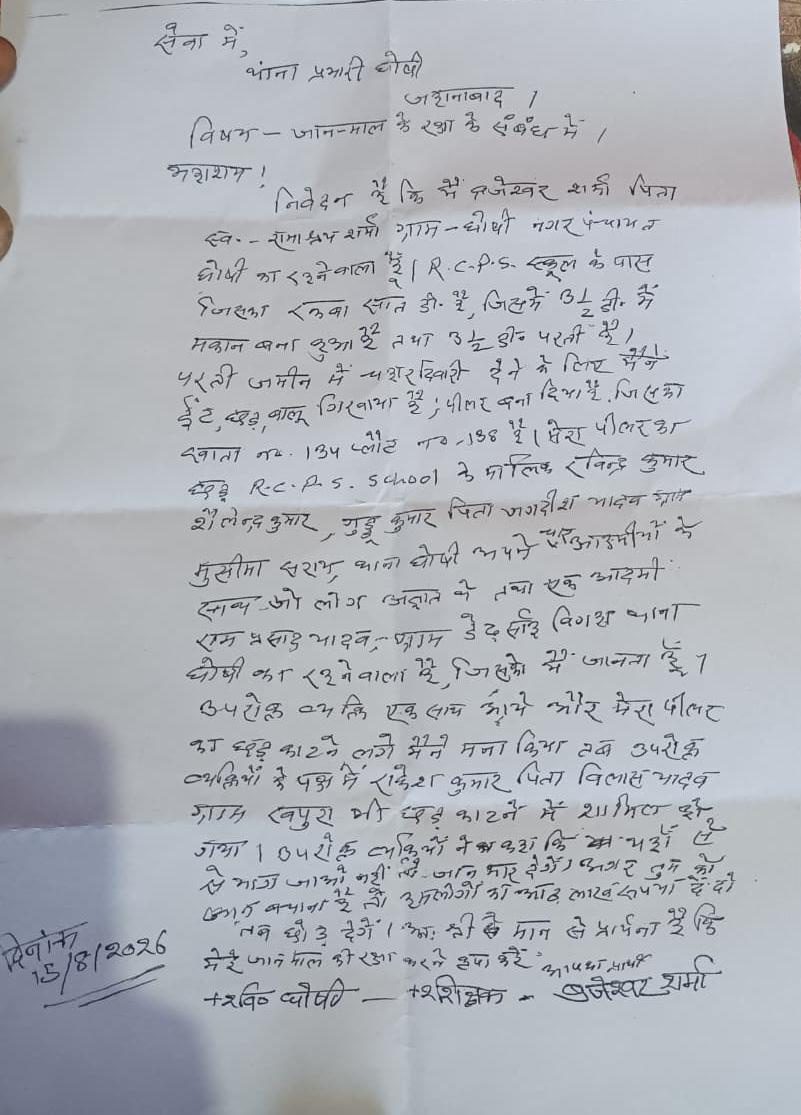 सेवा में,
थाना प्रभारी घोषी
जहानाबाद ।
विषय - जान-माल के रक्षा के संबंध में ।
महाशय !
निवेदन है कि मैं ब्रजेश्वर शर्मा पिता
स्व.- रामाश्रय शर्मा ग्राम - घोषी नगर पंचायत
घोषी का रहने वाला हूँ । R.C.P.S. स्कूल के पास
जिसका रकबा सात डी. है, जिसमें 3 1/2 डी. में
मकान बना हुआ है तथा 3 1/2 डी. परती है ।
परती जमीन में चहरदिवारी देने के लिए मैंने
ईंट, छड़, बालू गिरवाया है ; पीलर बना दिया है . जिसका
खाता न०. 134 प्लौट न० - 138 है । मेरा पीलर का
छड़ R.C.P.S. School के मालिक रविन्द्र कुमार
शैलेन्द्र कुमार, गुड्डू कुमार पिता जगदीश यादव ग्राम
मुसीमा सराय, थाना घोषी अपने आदमीयों के
साथ जो लोग अज्ञात थे तथा एक आदमी
राम प्रसाद यादव, ग्राम विगहा थाना
घोषी का रहने वाला है, जिसको मैं जानता हूँ ।
उपरोक्त व्यक्ति एक साथ आये और मेरा पीलर
का छड़ काटने लगे मैंने मना किया तब उपरोक्त
व्यक्तियों के पक्ष में राकेश कुमार पिता विलास यादव
ग्राम भी छड़ काटने में शामिल हो
गया । उपरोक्त व्यक्तियों ने कहा कि यहाँ से
भाग जाओ नहीं तो जान मार देगें । अगर तुम को
जान बचाना है तो हमलोगों को आठ लाख रूपया दे दो
तब छोड़ देगें । अतः श्री मान से प्रार्थना है कि
मेरे जान माल की रक्षा करने कृपा करें
आपका प्रार्थी
घोषी — ब्रजेश्वर शर्मा
दिनांक
15/8/2026